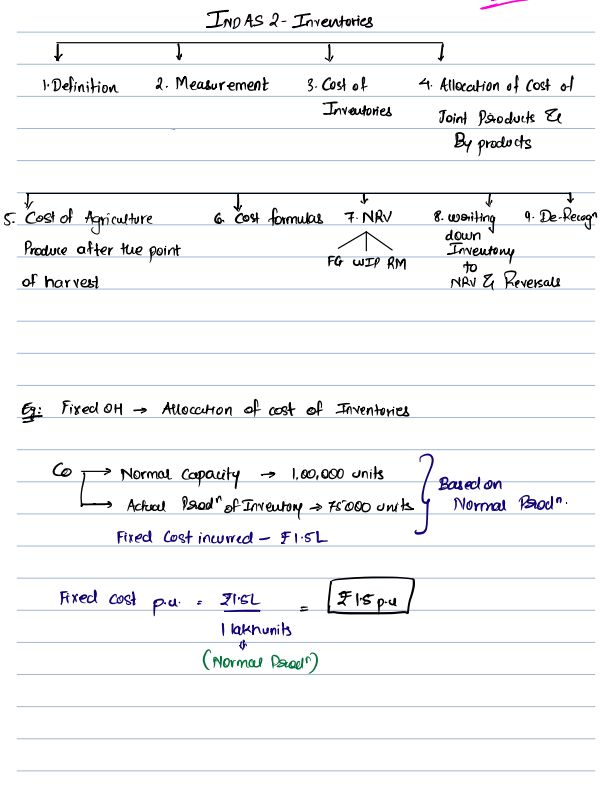 IND AS 2 - Inventories
1. Definition 2. Measurement 3. Cost of Inventories 4. Allocation of cost of Joint Products & By products
5. Cost of Agriculture Produce after the point of harvest 6. Cost formulas 7. NRV 8. Writing down Inventory to NRV & Reversals 9. De-Recogn
FG WIP RM
Eg: Fixed OH → Allocation of cost of Inventories
Co → Normal Capacity → 1,00,000 units
→ Actual Prodn of Inventory → 75000 units
Based on
Normal Prodn.
Fixed Cost incurred - ₹1.5L
Fixed cost p.u. = ₹1.5L = ₹1.5 p.u
1 lakh units
(Normal Prodn)